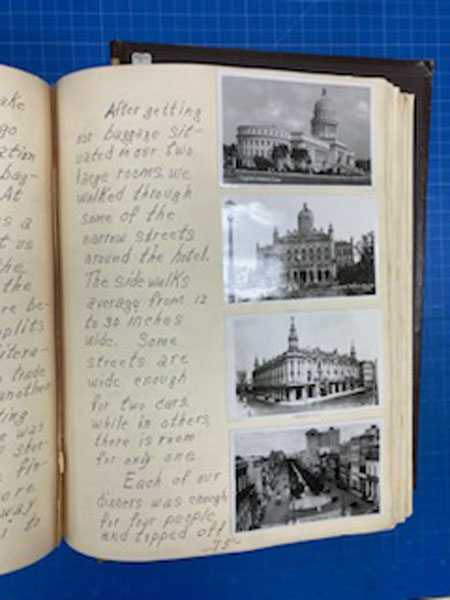 ake
go
ation
bag-
At
s a
t us
the
the
re be-
plits
itera-
trade
another
ting
e was
shor-
fin-
ore
way
i to
After getting
our baggage sit-
uated in our two
large rooms. we
walked through
some of the
narrow streets
around the hotel.
The sidewalks
average from 12
to 30 inches
wide. Some
streets are
wide enough
for two cars.
while in others,
there is room
for only one
Each of our
dinners was enough
for four people
and tipped off
-75-